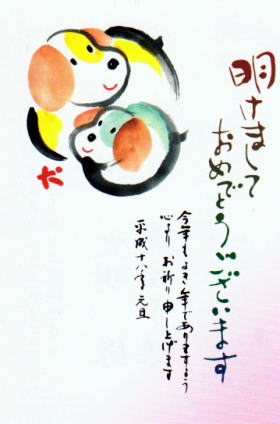 明けまして
おめでとうございます
今年もよき年でありますよう
心より お祈り申し上げます
平成十八年 元旦